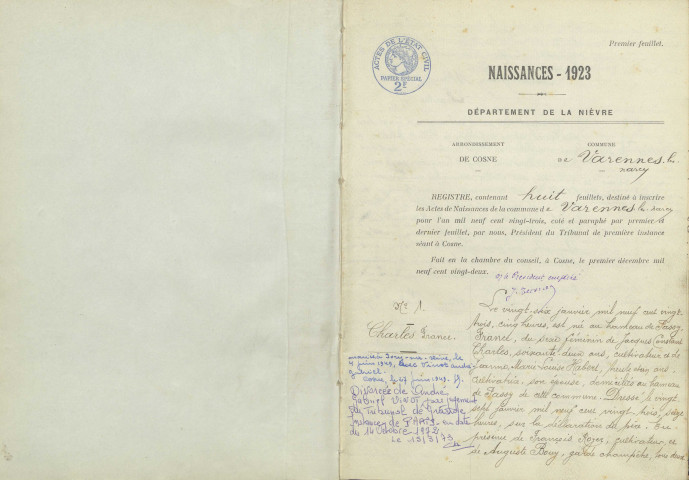 Premier feuillet.
ACTES DE L'ÉTAT CIVIL
PAPIER SPÉCIAL
2F
NAISSANCES - 1923
DÉPARTEMENT DE LA NIÈVRE
ARRONDISSEMENT
DE COSNE
COMMUNE
DE Varennes les
narcy
REGISTRE, contenant huit feuillets, destiné à inscrire
les Actes de Naissances de la commune de Varennes les narcy
pour l'an mil neuf cent vingt-trois, coté et paraphé par premier et
dernier feuillet, par nous, Président du Tribunal de première instance
séant à Cosne.
Fait en la chambre du conseil, à Cosne, le premier décembre mil
neuf cent vingt-deux.
Président
No 1.
Charles France
le
4 juin 1949, avec Vinot André
Gabriel
Cosne, le juin 1949.
Divorcée de André
Gabriel VINOT par jugement
du Tribunal de Grande
Instance de PARIS en date
du 14 octobre 1972
Le 13/3/73
Le vingt six janvier mil neuf cent vingt
trois, cinq heures, est né au hameau de Passy
France, du sexe féminin de Jacques Constant
Charles, soixante deux ans, cultivateur et de
Jeanne Marie Louise Habert, ans,
cultivatrice, son épouse, domiciliés au hameau
de Passy de cette commune. Dressé le vingt
sept janvier mil neuf cent vingt trois, seize
heures, sur la déclaration du père. En
présence de François Roger, cultivateur, et
de Auguste Bouy, garde champêtre, tous deux